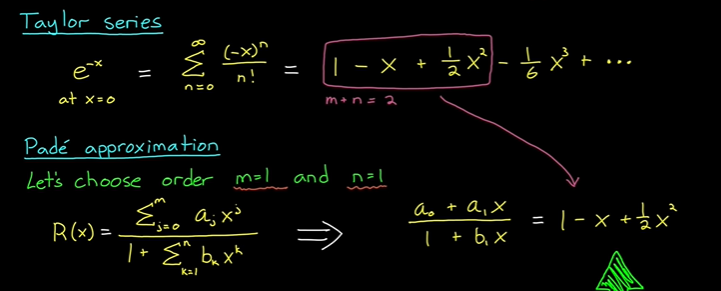 Taylor series
e^{-x} = \sum_{n=0}^{∞} \frac{(-x)^n}{n!} = 1 - x + \frac{1}{2}x^2 - \frac{1}{6}x^3 + ...
at x=0
m+n = 2
Padé approximation
Let's choose order m=1 and n=1
R(x) = \frac{\sum_{j=0}^{m} a_j x^j}{1 + \sum_{k=1}^{n} b_k x^k} ⟹ \frac{a_0 + a_1 x}{1 + b_1 x} = 1 - x + \frac{1}{2}x^2